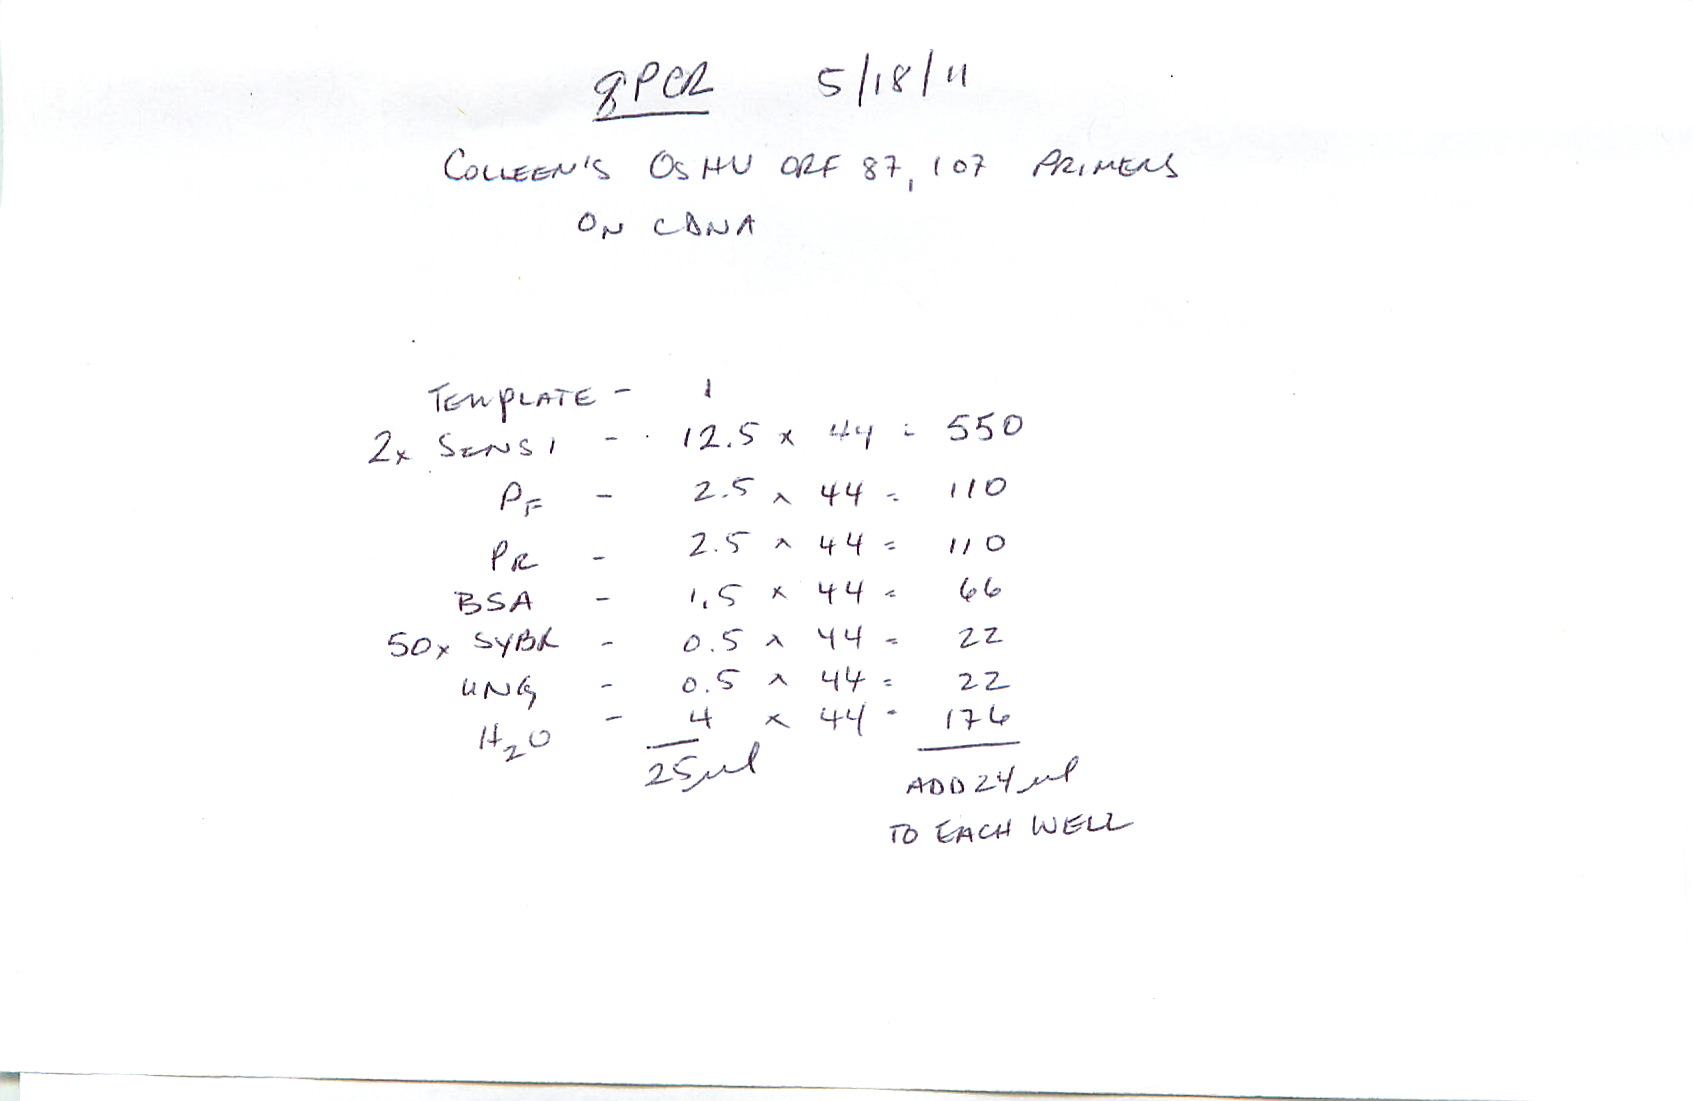 qPCR 5/18/11
COLLEEN'S OSHV ORF 87, 107 PRIMERS
ON CDNA
TEMPLATE - 1
2x SENSI - 12.5 x 44 = 550
PF - 2.5 x 44 = 110
PR - 2.5 x 44 = 110
BSA - 1.5 x 44 = 66
50x SYBR - 0.5 x 44 = 22
UNG - 0.5 x 44 = 22
H2O - 4 x 44 = 176
25µl
ADD 24 µl
TO EACH WELL